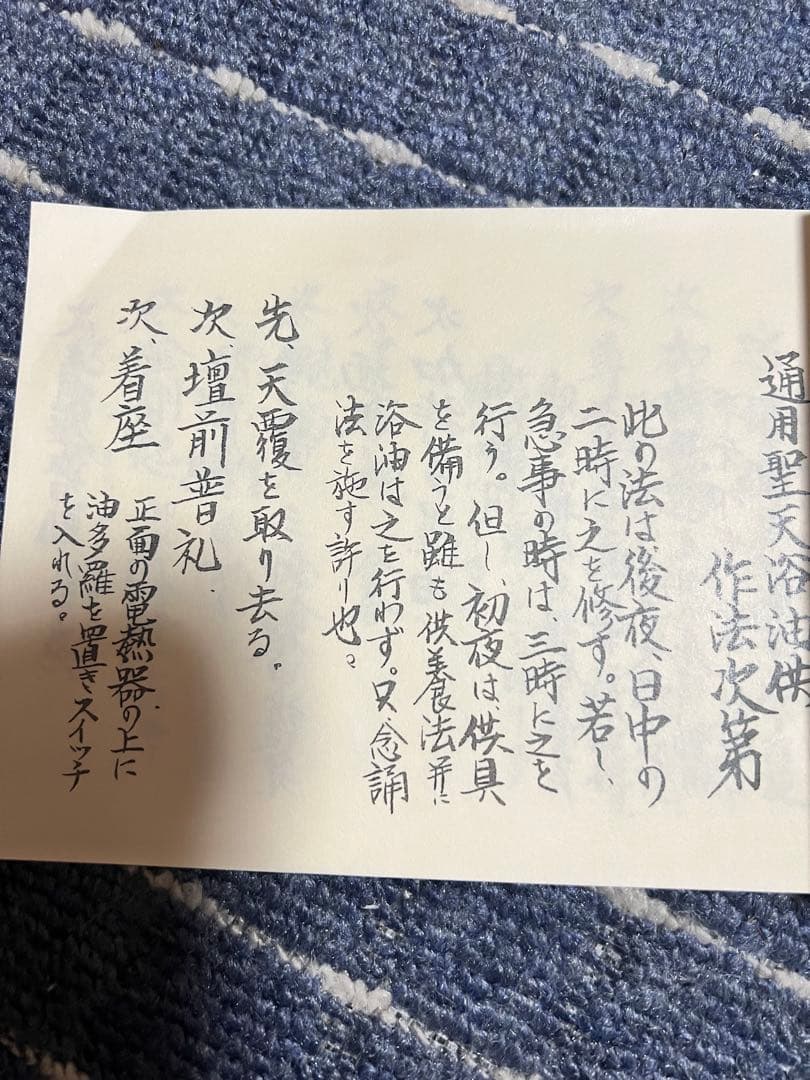 通用聖天浴油供
作法次第
此の法は後夜、日中の
二時に之を修す。若し、
急事の時は、三時に之を
行う。但し、初夜は、供具
を備うと雖も供養法并に
浴油は之を行わず。只、念誦
法を施す許り也。
先、天覆を取り去る。
次、壇前普礼、
次、着座
正面の電熱器の上に
油多羅を置きスイッチ
を入れる。